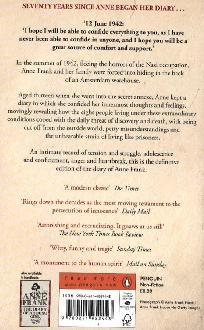 SEVENTY YEARS SINCE ANNE BEGAN HER DIARY . . .
'12 June 1942:
'I hope I will be able to confide everything to you, as I have
never been able to confide in anyone, and I hope you will be a
great source of comfort and support.'
In the summer of 1942, fleeing the horrors of the Nazi occupation,
Anne Frank and her family were forced into hiding in the back
of an Amsterdam warehouse.
Aged thirteen when she went into the secret annexe, Anne kept a
diary in which she confided her innermost thoughts and feelings,
movingly revealing how the eight people living under these extraordinary
conditions coped with the daily threat of discovery and death, with being
cut off from the outside world, petty misunderstandings and
the unbearable strain of living like prisoners.
An intimate record of tension and struggle, adolescence
and confinement, anger and heartbreak, this is the definitive
edition of the diary of Anne Frank.
'A modern classic' The Times
'Rings down the decades as the most moving testament to the
persecution of innocence' Daily Mail
'Astonishing and excruciating. It gnaws at us still'
The New York Times Book Review
'Witty, funny and tragic' Sunday Times
'A monument to the human spirit' Mail on Sunday
ANNE
PENGUIN
Non-Fiction
ISBN